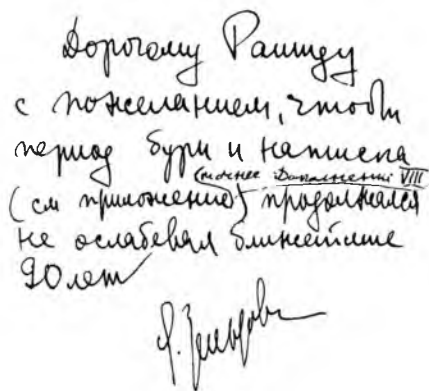 Дорогому Рашиду
с пожеланием, чтобы
период бури и натиска
(точнее Дополнений VIII
(см приложение) продолжался
не ослабевая ближайшие
90 лет
Я. Зельдович